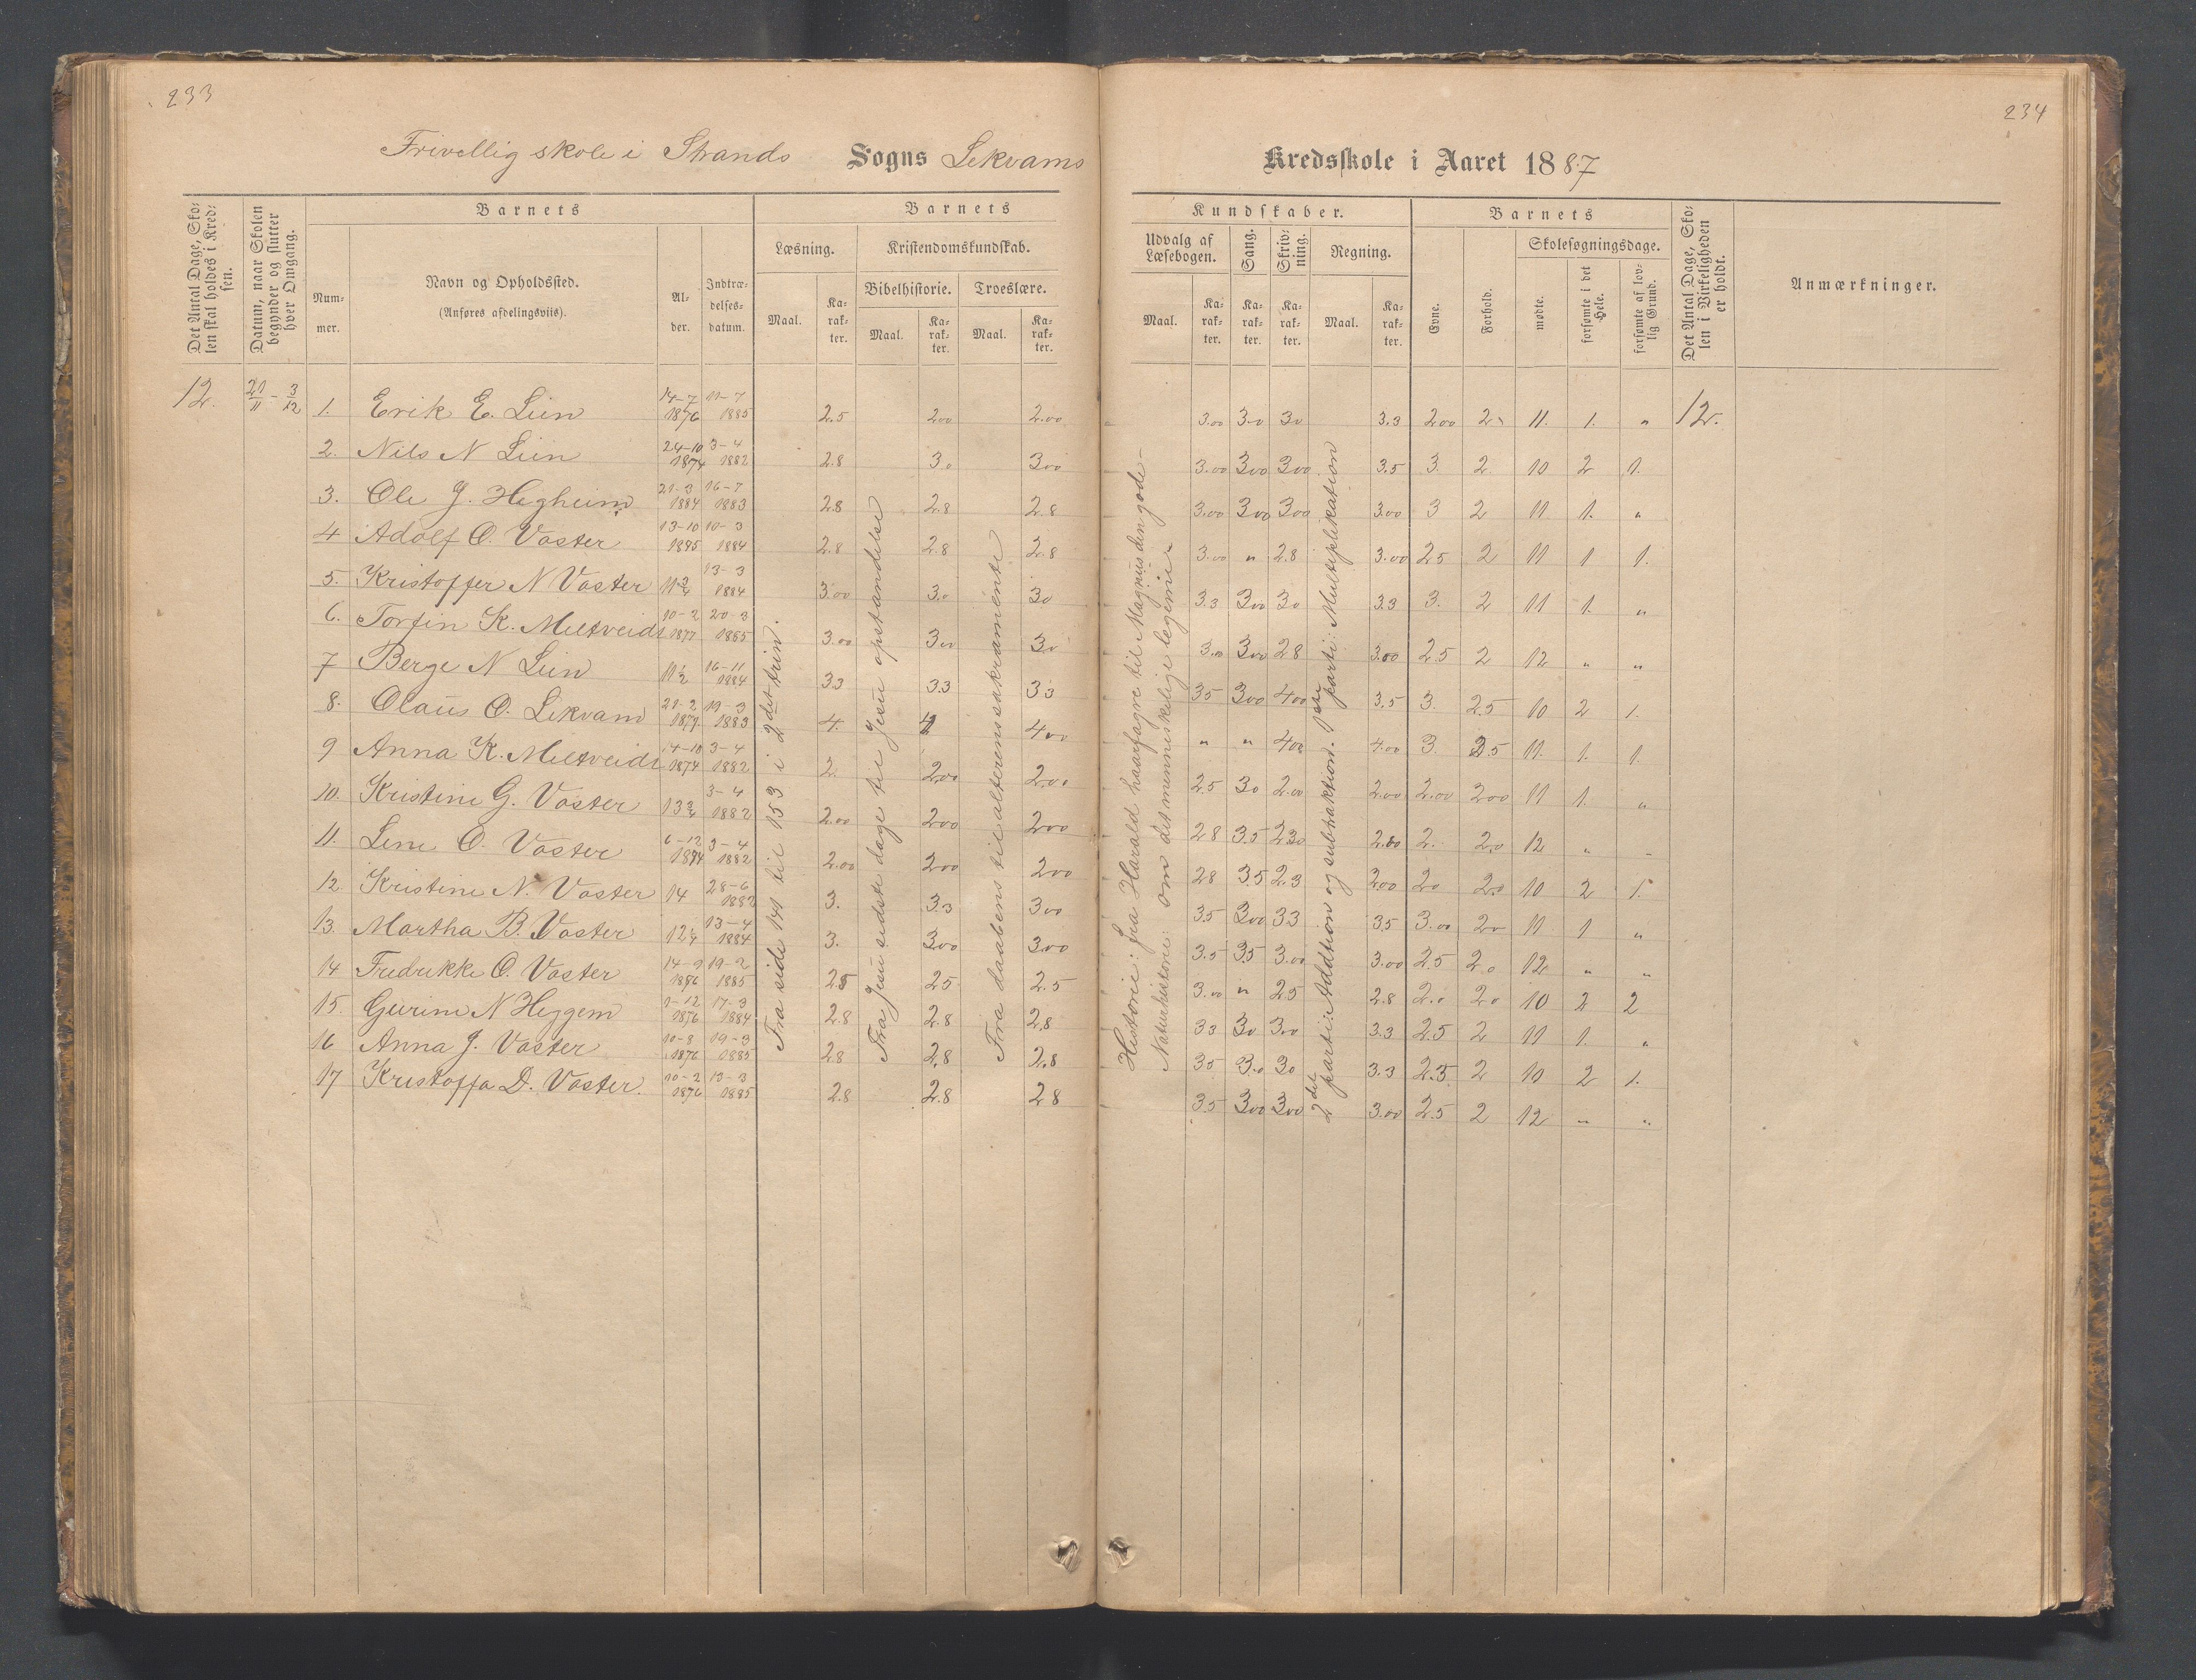 233
234
Frivellig skole i Strands Sogns Lekvams Kredsskole i Aaret 1887
Det Antal Dage, Skolen skal holdes i Kredsen.
Datum, naar Skolen begynder og slutter hver Omgang.
Barnets
Nummer.
Navn og Opholdssted.
(Anføres afdelingsviis).
Alder.
Indtrædelsesdatum.
Barnets
Læsning.
Maal.
Karakter.
Kristendomskundskab.
Bibelhistorie.
Maal.
Karakter.
Troeslære.
Maal.
Karakter.
Kundskaber.
Udvalg af Læsebogen.
Maal.
Karakter.
Sang.
Karakter.
Skrivning.
Karakter.
Regning.
Maal.
Karakter.
Barnets
Evne.
Forhold.
Skolesøgningsdage.
mødte.
forsømte i det Hele.
forsømte af lovlig Grund.
Det Antal Dage, Skolen i Virkeligheden er holdt.
Anmærkninger.
12. 21/11 - 3/12
1. Erik E. Lien 14-7 1876 11-7 1885 2.5 2.00 2.00 3.00 3.0 3.0 3.3 2.00 2 11. 1. " 12.
2. Nils N Lien 24-10 1874 3-4 1882 2.8 3.0 3.00 3.00 3.00 3.00 3.5 3. 2 10 2 1.
3. Ole J. Hegheim 21-3 1884 16-7 1883 2.8 2.8 2.8 3.00 3.00 3.00 3.00 3 2 11 1. "
4 Adolf O. Vaster 13-10 10-3 1884 2.8 2.8 2.8 3.00 " 2.8 3.00 2.5 2 11 1 1.
5. Kristoffer N Vaster 13-3 1884 3.00 3.0 3.0 3.3 3.00 3.0 3.3 3. 2 11 1. "
6. Torfin K. Meltveidt 10-2 1877 20-3 1885 3.00 3.00 3.0 3.00 3.00 2.8 3.00 2.5 2 12 " "
7 Berge N Lien 11 1/2 16-11 1884 3.3 3.3 3.3 3.5 3.00 4.00 3.5 3. 2.5 10 2 1.
8. Olaus O. Lekvam 21-2 19-3 1883 4. 4 4.00 " " 4.00 4.00 3 2.5 11. 1. 1.
9 Anna K. Meltveidt 14-10 1874 3-4 1882 2. 2.00 2.00 2.5 3.0 2.00 2.00 2.00 3.00 11 1. "
10. Kristine G. Vaster 3-4 1882 2.00 2.00 2.00 2.8 3.5 2.30 2.00 2. 2.0 12 " "
11. Lene O. Vaster 6-12 3-4 1882 2.00 2.00 2.00 2.8 3.5 2.3 2.00 2.0 2.0 10 2 1.
12. Kristine N. Vaster 14 28-6 1882 3. 3.3 3.00 3.5 3.00 3.3 3.5 3.00 2.0 11 1 "
13. Martha B. Vaster 12 1/4 13-4 1884 3. 3.00 3.00 3.5 3.5 3.00 3.00 2.5 2.0 12 " "
14 Fredrikke O. Vaster 14-9 1876 19-2 1885 2.5 2.5 2.5 3.00 " 2.5 2.8 2.0 2.0 10 2 2
15. Gurine N Heggem 1-12 1876 17-3 1884 2.8 2.8 2.8 3.3 3.0 3.00 3.3 2.5 2 11 1. "
16 Anna J. Vaster 10-8 1876 19-3 1885 2.8 2.8 2.8 3.5 3.0 3.0 3.3 2.5 2 10 2 1.
17 Kristoffa D. Vaster. 10-2 1876 13-3 1885 2.8 2.8 2.8 3.5 3.00 3.00 3.00 2.5 2 12 " "
Fra side 141 til 153 i 2det trin.
Fra Jesu sidste dage til Jesu opstandelse
Fra daabens til alterens sakramente
Historie: fra Harald haarfagre til Magnus den gode-
Naturhistorie: om det menneskelige legeme.
2det parti: Addtion og subtraktion. 1ste parti: Multiplikation